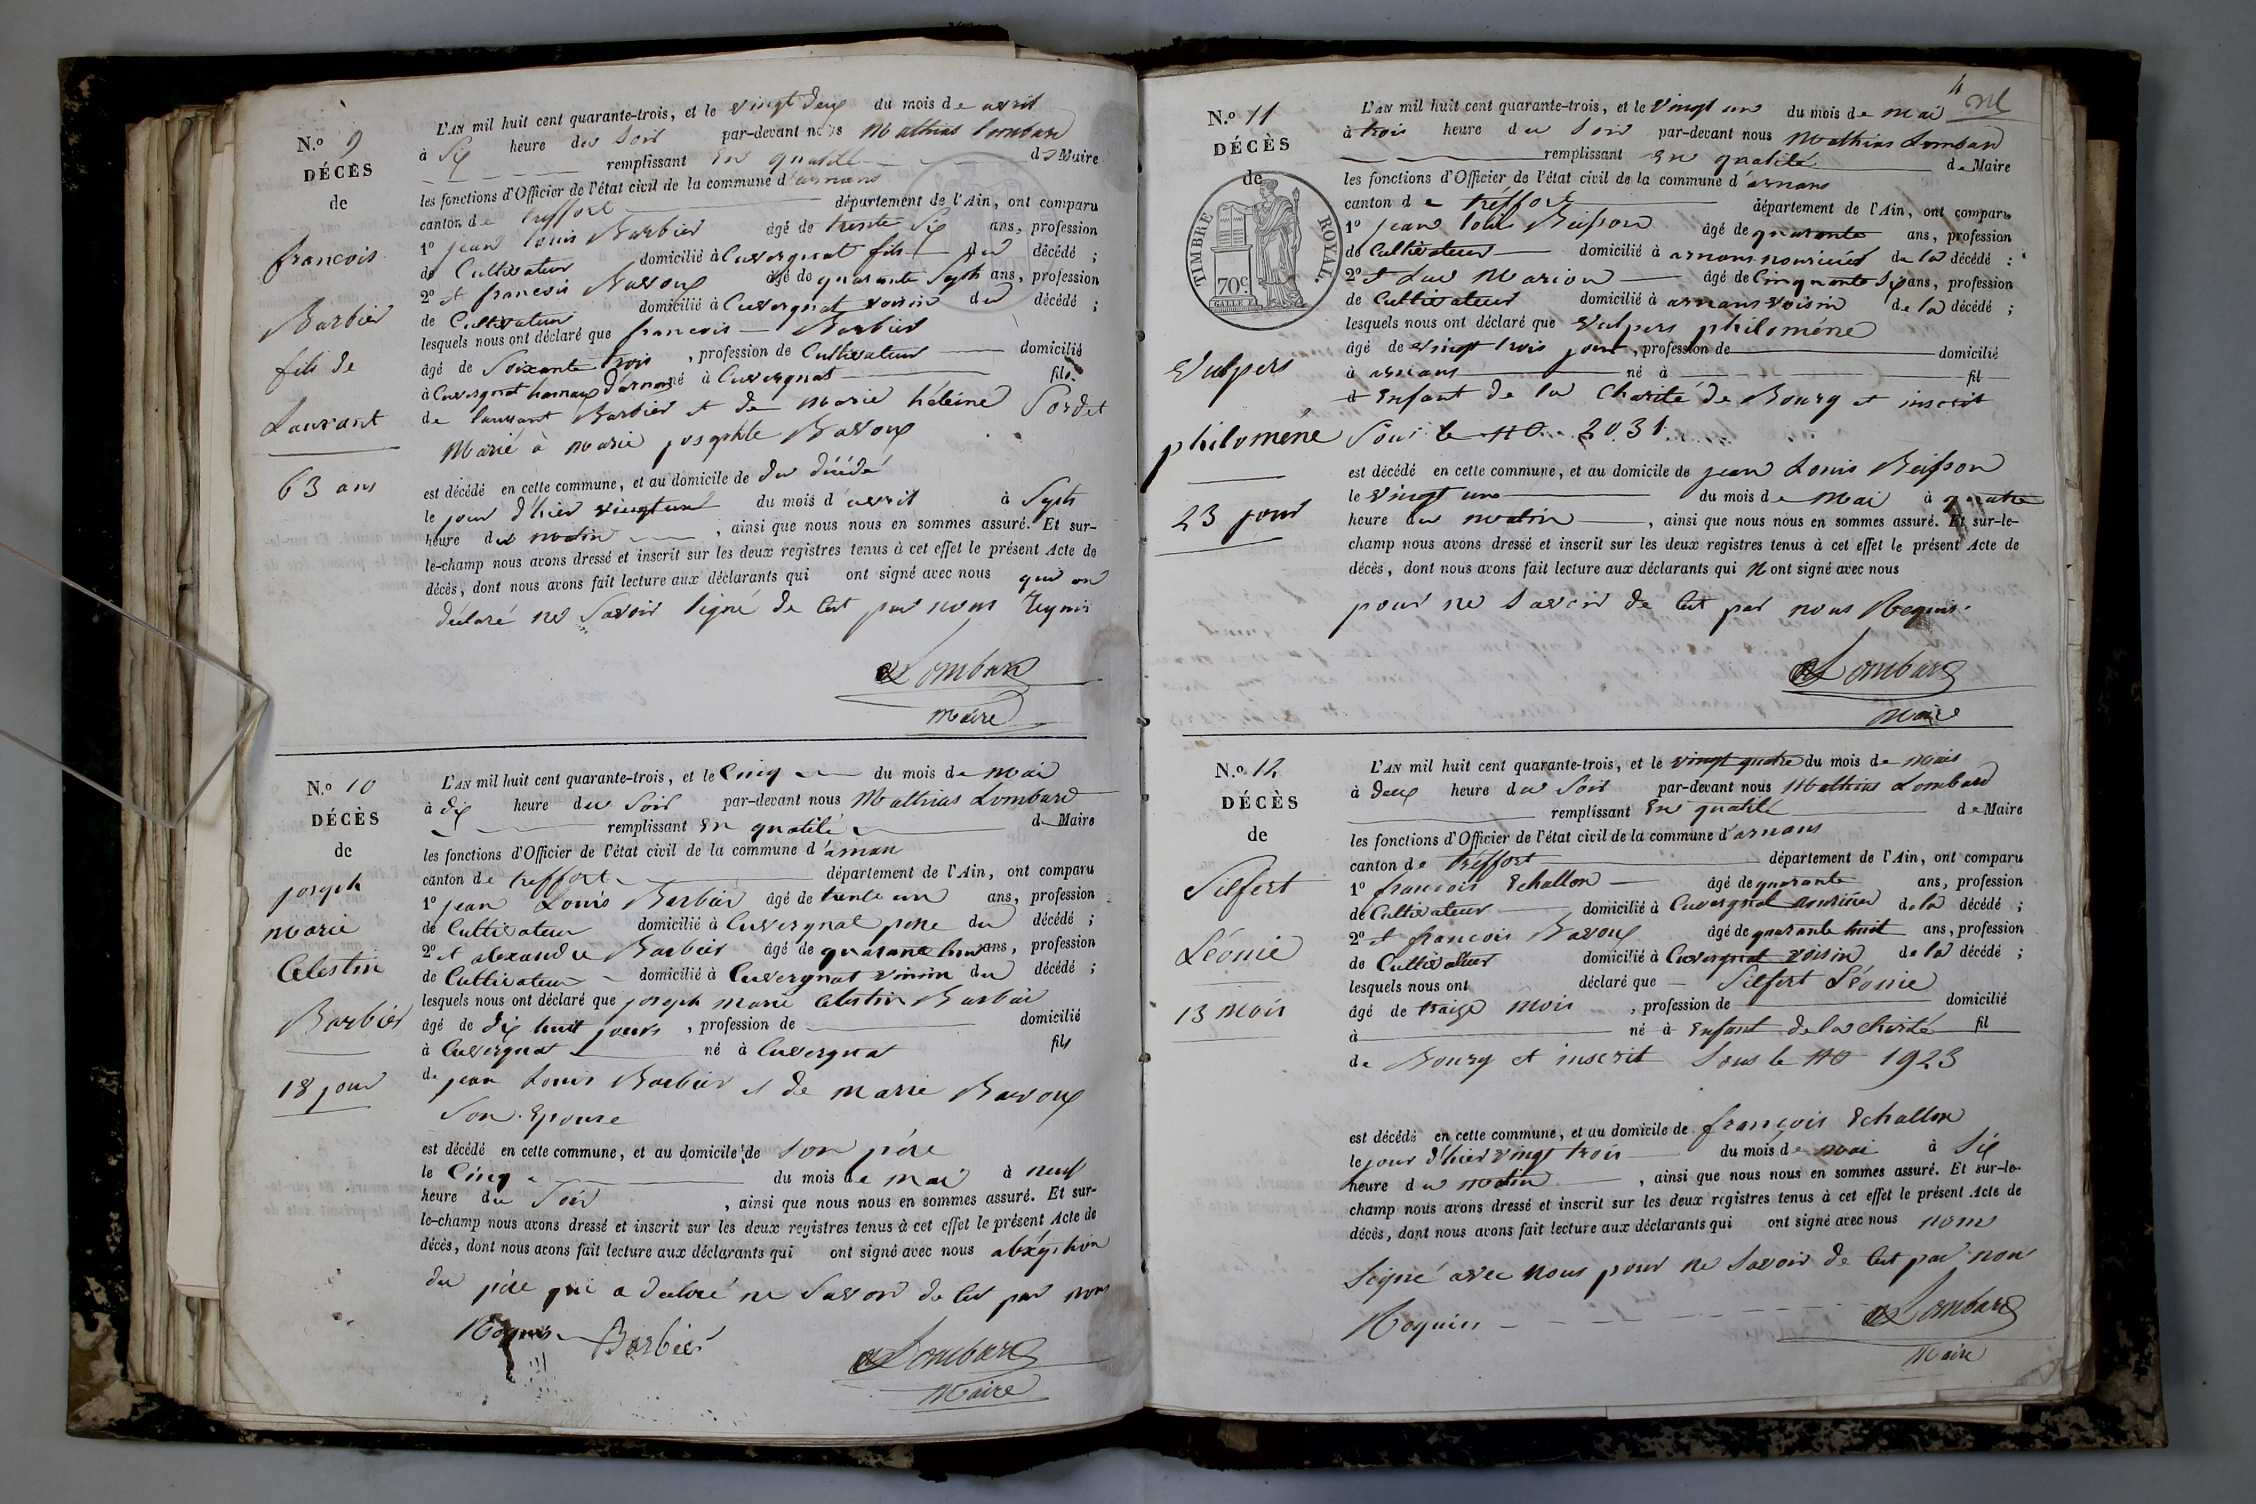 N.º 9
DÉCÈS
de
françois
Barbier
fils de
Laurant
63 ans
L'AN mil huit cent quarante-trois, et le vingt deux du mois de avril
à Six heure du Soir par-devant nous Mathias Lombard
remplissant en qualité de Maire
les fonctions d'Officier de l'état civil de la commune d'arnans
canton de treffort département de l'Ain, ont comparu
1º jean louis Barbier âgé de trente Six ans, profession
de Cultivateur domicilié à Cuvergnat fils du décédé ;
2º et francois Bavoux âgé de quarante Septh ans, profession
de Cultivateur domicilié à Cuvergnat voisin du décédé ;
lesquels nous ont déclaré que francois Barbier
âgé de Soixante trois , profession de Cultivateur domicilié
à Cuvergnat hameaux d'arnans né à Cuvergnat fils
de laurant Barbier et de Marie héleine Sordet
Marié à Marie josephte Bavoux
est décédé en cette commune, et au domicile de du décédé
le jour d'hier vingt un du mois d'avril à Septh
heure du matin , ainsi que nous nous en sommes assuré. Et sur-
le-champ nous avons dressé et inscrit sur les deux registres tenus à cet effet le présent Acte de
décès, dont nous avons fait lecture aux déclarants qui ont signé avec nous qui on
déclaré ne Savoir Signé de Cet par nous Requis
Lombard
Maire
N.º 10
DÉCÈS
de
joseph
Marie
Celestin
Barbier
18 jour
L'AN mil huit cent quarante-trois, et le Cinq du mois de Mai
à dix heure du Soir par-devant nous Mathias Lombard
remplissant en qualité de Maire
les fonctions d'Officier de l'état civil de la commune d'arnan
canton de treffort département de l'Ain, ont comparu
1º jean Louis Barbier âgé de trente un ans, profession
de Cultivateur domicilié à Cuvergnat père du décédé ;
2º et alexandre Barbier âgé de quarante huit ans, profession
de Cultivateur domicilié à Cuvergnat voisin du décédé ;
lesquels nous ont déclaré que joseph Marie Celestin Barbier
âgé de dix huit jours , profession de domicilié
à Cuvergnat né à Cuvergnat fils
de jean Louis Barbier et de Marie Bavoux
Son Epouse
est décédé en cette commune, et au domicile de Son père
le Cinq du mois de Mai à neuf
heure du Soir , ainsi que nous nous en sommes assuré. Et sur-
le-champ nous avons dressé et inscrit sur les deux registres tenus à cet effet le présent Acte de
décès, dont nous avons fait lecture aux déclarants qui ont signé avec nous
du père qui a déclaré ne Savoir de Cet par nous
Requis Barbier
Lombard
Maire
4
N.º 11
DÉCÈS
de
TIMBRE ROYAL.
70c
Vulpers
philomène
23 jour
L'AN mil huit cent quarante-trois, et le Vingt un du mois de Mai
à trois heure du Soir par-devant nous Mathias Lombard
remplissant En qualité de Maire
les fonctions d'Officier de l'état civil de la commune d'arnans
canton de tréffort département de l'Ain, ont comparu
1º jean louis Buisson âgé de quarante ans, profession
de Cultivateur domicilié à arnans nouricier de la décédé ;
2º et Luc Marion âgé de Cinquante Six ans, profession
de Cultivateur domicilié à arnans voisin de la décédé ;
lesquels nous ont déclaré que Vulpers philomène
âgé de vingt trois jour , profession de domicilié
à arnans né à fil
d Enfant de la Charité de Bourg et inscrit
Sous le No 2031
est décédé en cette commune, et au domicile de jean Louis Buisson
le vingt un du mois de Mai à quatre
heure du matin , ainsi que nous nous en sommes assuré. Et sur-le-
champ nous avons dressé et inscrit sur les deux registres tenus à cet effet le présent Acte de
décès, dont nous avons fait lecture aux déclarants qui N ont signé avec nous
pour ne Savoir de Cet par nous Requis.
Lombard
Maire
N.º 12
DÉCÈS
de
Silfert
Léonie
13 Mois
L'AN mil huit cent quarante-trois, et le vingt quatre du mois de Mais
à deux heure du Soir par-devant nous Mathias Lombard
remplissant En qualité de Maire
les fonctions d'Officier de l'état civil de la commune d'arnans
canton de tréffort département de l'Ain, ont comparu
1º francois Echallon âgé de quarante ans, profession
de Cultivateur domicilié à Cuvergnat nouricier de la décédé ;
2º et francois Bavoux âgé de quarante huit ans, profession
de Cultivateur domicilié à Cuvergnat voisin de la décédé ;
lesquels nous ont déclaré que Silfert Léonie
âgé de traize Mois , profession de domicilié
à né à Enfant de la charité fil
de Bourg et inscrit Sous le No 1923
est décédé en cette commune, et au domicile de françois Echallon
le jour d'hier vingt trois du mois de mai à Six
heure du matin , ainsi que nous nous en sommes assuré. Et sur-le-
champ nous avons dressé et inscrit sur les deux registres tenus à cet effet le présent Acte de
décès, dont nous avons fait lecture aux déclarants qui ont signé avec nous nons
Seigné avec nous pour ne Savoir de Cet par nou
Requis
Lombard
Maire